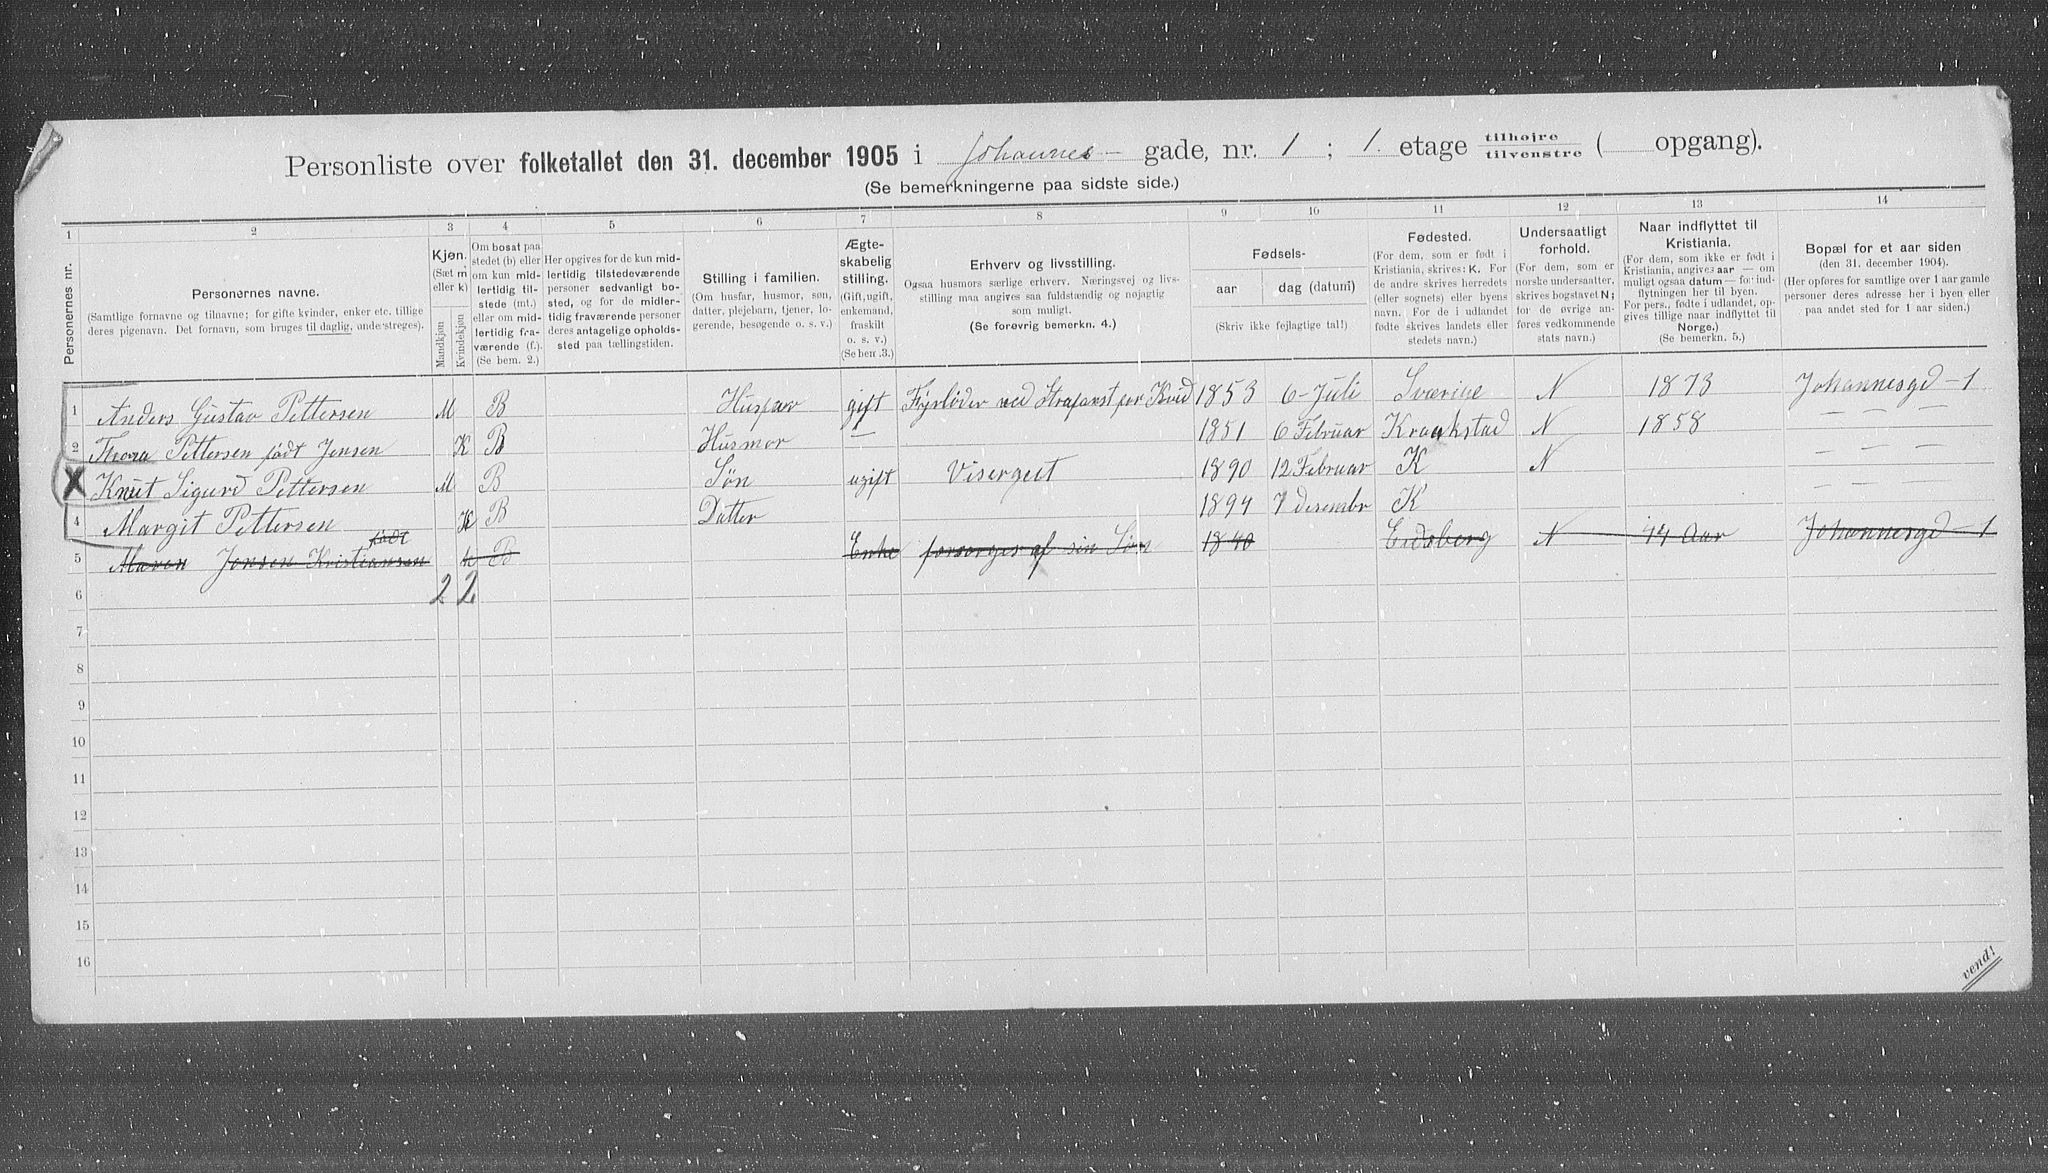 Personliste over folketallet den 31. december 1905 i Johannes- gade, nr. 1 ; 1. etage tilhøjre/tilvenstre ( opgang).
(Se bemerkningerne paa sidste side.)
1 2 3 4 5 6 7 8 9 10 11 12 13 14
Personernes nr.
Personernes navne.
(Samtlige fornavne og tilnavne; for gifte kvinder, enker etc. tillige deres pigenavn. Det fornavn, som bruges til daglig, understreges).
Kjøn.
(Sæt m eller k)
Mandkjøn
Kvindekjøn
Om bosat paa stedet (b) eller om kun midlertidig tilstede (mt.) eller om midlertidig fraværende (f.).
(Se bem. 2.)
Her opgives for de kun midlertidig tilstedeværende personer sedvanligt bosted, og for de midlertidig fraværende personer deres antagelige opholdssted paa tællingstiden.
Stilling i familien.
(Om husfar, husmor, søn, datter, plejebarn, tjener, logerende, besøgende o. s. v.)
Ægteskabelig stilling.
(Gift, ugift, enkemand, fraskilt o. s. v.)
(Se bem. 3.)
Erhverv og livsstilling.
Ogsaa husmors særlige erhverv. Næringsvej og livsstilling maa angives saa fuldstændig og nøjagtig som muligt.
(Se forøvrig bemerkn. 4.)
Fødsels-
aar dag (datum)
(Skriv ikke fejlagtige tal!)
Fødested.
(For dem, som er født i Kristiania, skrives: K. For de andre skrives herredets (eller sognets) eller byens navn. For de i udlandet fødte skrives landets eller stedets navn.)
Undersaatligt forhold.
(For dem, som er norske undersaatter, skrives bogstavet N; for de øvrige anføres vedkommende stats navn.)
Naar indflyttet til Kristiania.
(For dem, som ikke er født i Kristiania, angives aar — om muligt ogsaa datum — for indflytningen her til byen. For pers., fødte i udlandet, opgives tillige naar indflyttet til Norge.)
(Se bemerkn. 5.)
Bopæl for et aar siden
(den 31. december 1904).
(Her opføres for samtlige over 1 aar gamle personer deres adresse her i byen eller paa andet sted for 1 aar siden.)
1 Anders Gustav Pettersen M B Husfar gift Fyrbøder ved Strafanst for Kvid 1853 6-Juli Sverige N 1873 Johannesgd - 1
2 Thora Pettersen født Jensen K B Husmor — 1851 6 Februar Kraakstad N 1858 — — —
X Knut Sigurd Pettersen M B Søn ugift Visergut 1890 12 Februar K N — — —
4 Margit Pettersen K B Datter 1894 7 desembr K — — — —
5 Maren Jensen født Kristiansen K B Enke forsørges af sin Søn 1840 Eidsberg N 44 Aar Johannesgd - 1
6 2 2
7
8
9
10
11
12
13
14
15
16
vend!